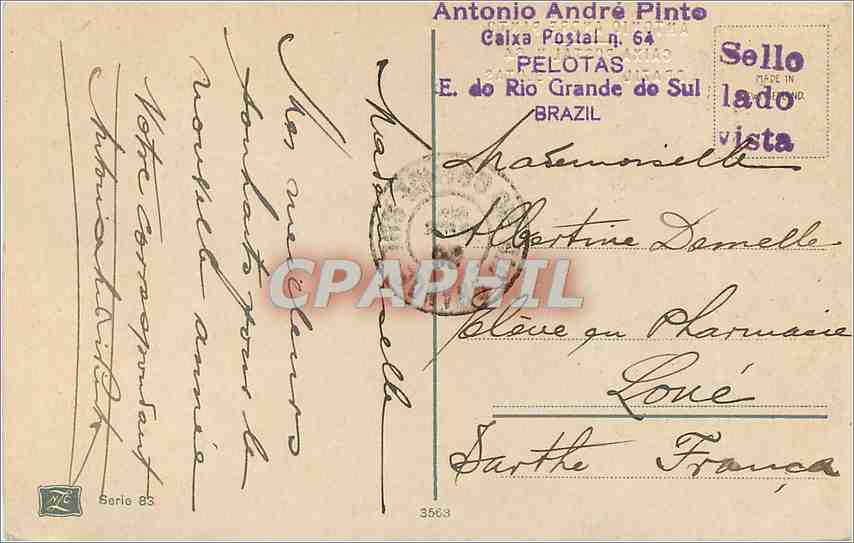 Antonio André Pinto
Caixa Postal n. 64
PELOTAS
E. do Rio Grande do Sul
BRAZIL
Sello
lado
vista
MADE IN
Mademoiselle
Albertine Demelle
Elève en Pharmacie
Loué
Sarthe França
Mademoiselle
Mes meilleurs
souhaits pour la
nouvelle année
Votre correspondant
CPAPHIL
NTC
Serie 83
3563